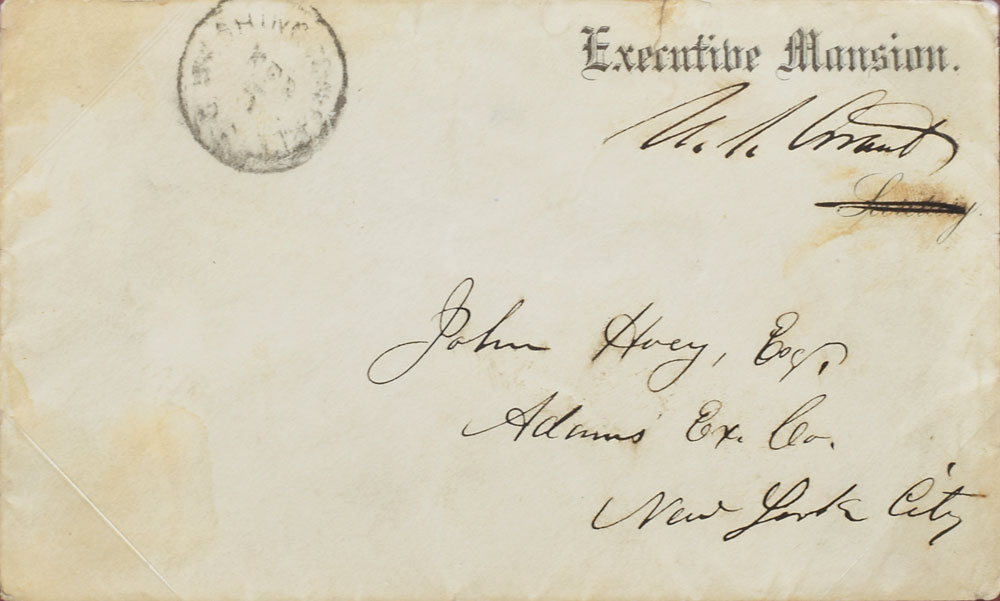 WASHINGTON
FEB
Executive Mansion.
U. S. Grant
John Hoey, Esq.
Adams Ex. Co.
New York City